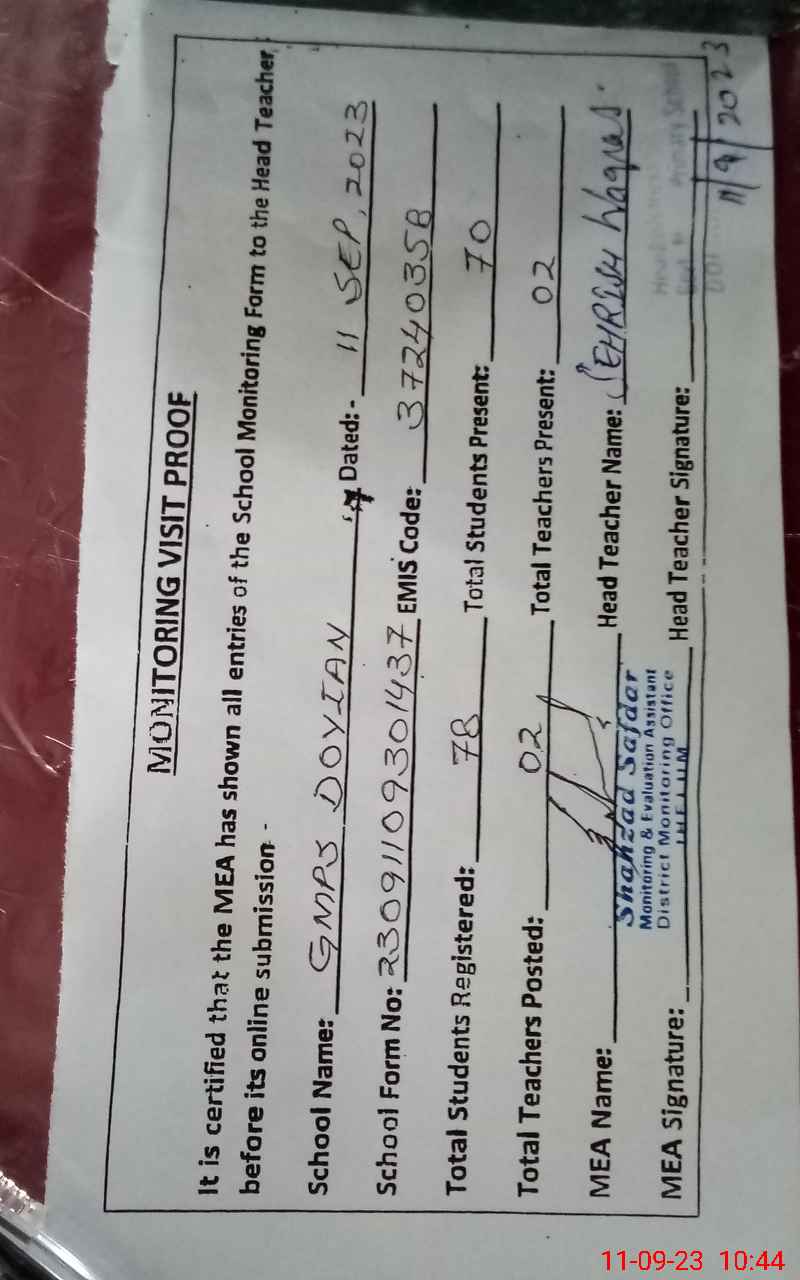 MONITORING VISIT PROOF
It is certified that the MEA has shown all entries of the School Monitoring Form to the Head Teacher
before its online submission -
School Name: GMPS DOYIAN Dated: - 11 SEP, 2023
School Form No: 23091109301437 EMIS Code: 37240358
Total Students Registered: 78 Total Students Present: 70
Total Teachers Posted: 02 Total Teachers Present: 02
MEA Name: Head Teacher Name: SEHRISH Waqas.
Shahzad Safdar
Monitoring & Evaluation Assistant
District Monitoring Office
JHELUM
MEA Signature: Head Teacher Signature:
Primary School
11/9/2023
11-09-23 10:44